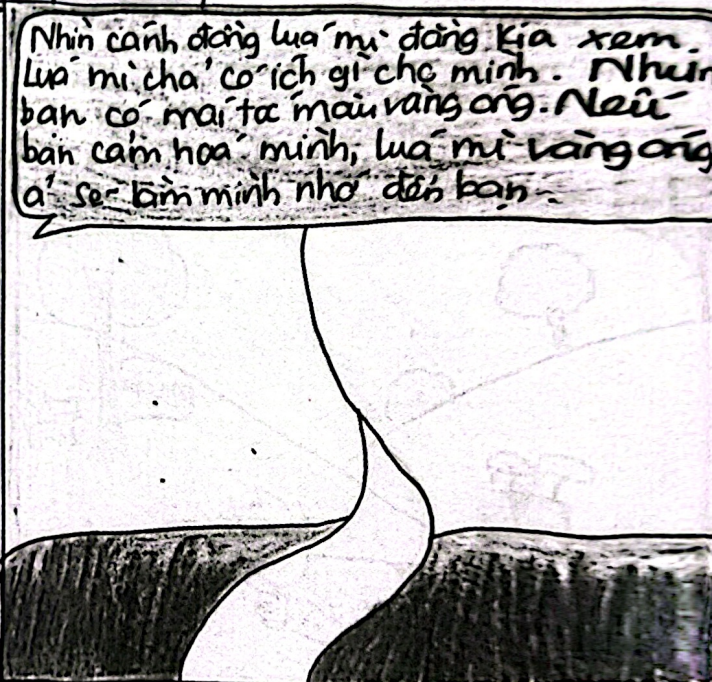 Nhìn cánh đồng lúa mì đằng kia xem.
Lúa mì chả có ích gì cho mình. Nhưn
bạn có mái tóc màu vàng óng. Nếu
bạn cảm hoá mình, lúa mì vàng óng
ả sẽ làm mình nhớ đến bạn.